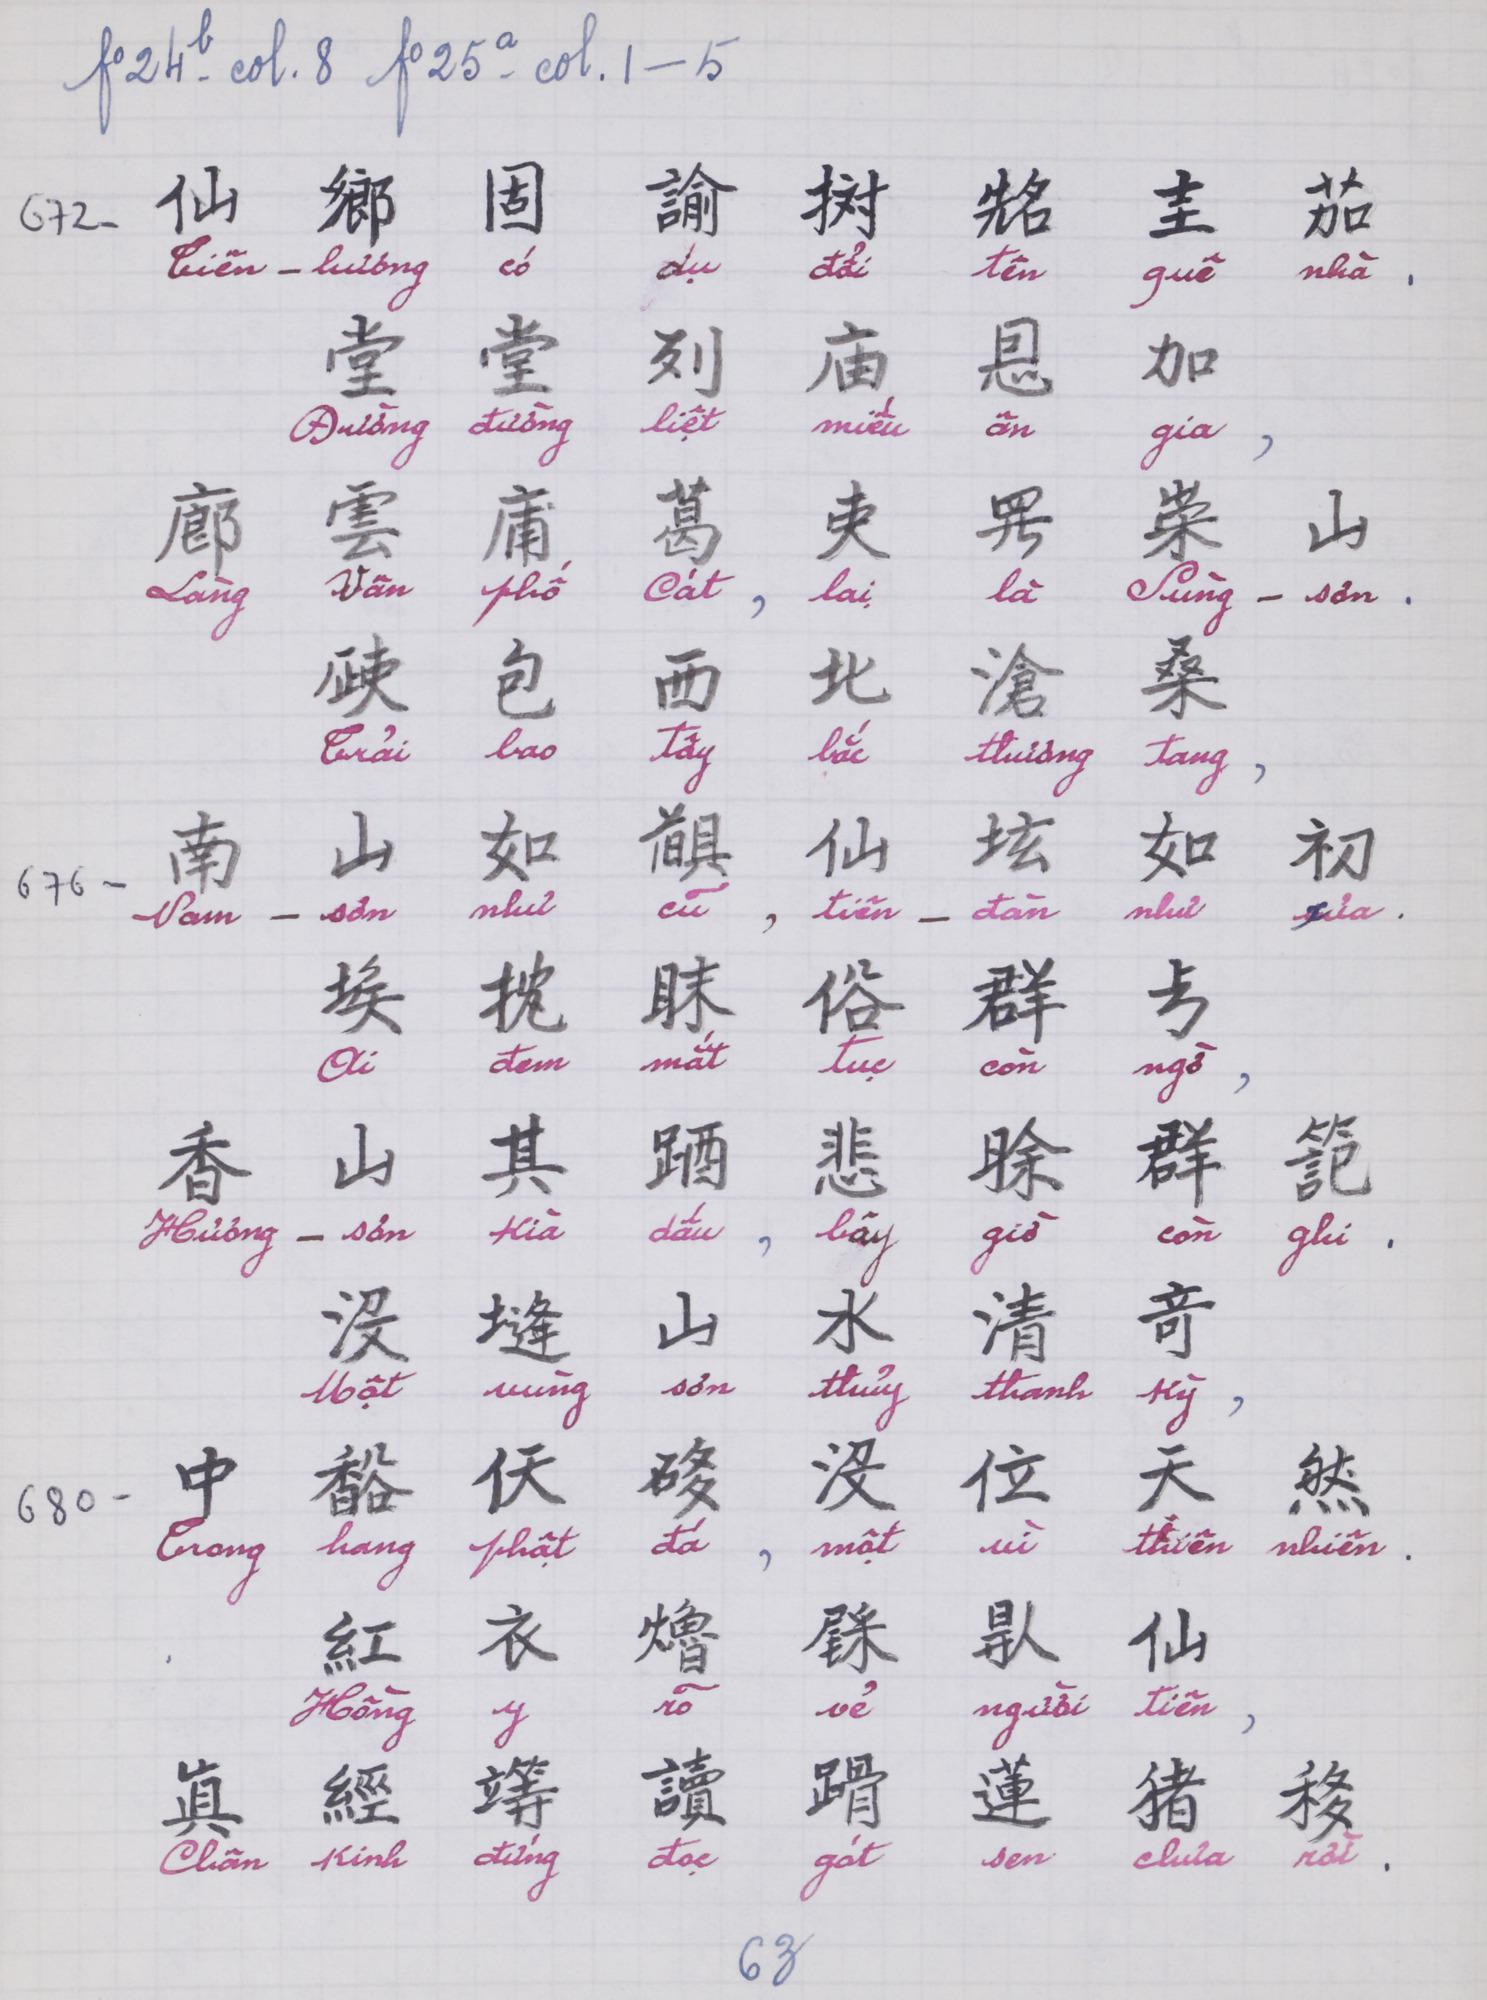 fº 24ᵇ - col. 8 fº 25ᵃ - col. 1 — 5
672- 仙 鄉 固 諭 树 㗂 圭 茄
Tiên – hương có dụ đổi tên quê nhà .
堂 堂 列 庙 恩 加
Đường đường liệt miếu ân gia ,
廊 雲 庯 葛 吏 罘 崇 山
Làng Vân phố Cát , lại là Sùng – sơn .
包 西 北 滄 桑
Trải bao tây bắc thương tang ,
南 山 如 仙 坛 如 初
676 – Nam – sơn như cũ , tiên – đàn như xưa .
埃 眜 俗 群
Ai đem mắt tục còn ngờ ,
香 山 其 悲 群
Hương – sơn kia dấu , bây giờ còn ghi .
没 塳 山 水 清 奇
Một vùng sơn thủy thanh kỳ ,
680 - 中 没 位 天 然
Trong hang phật đá , một vì thiên nhiên .
紅 衣 仙
Hồng y rõ vẻ người tiên ,
眞 經 讀 蓮 猪 移
Chân kinh đứng đọc gót sen chưa rời .
63